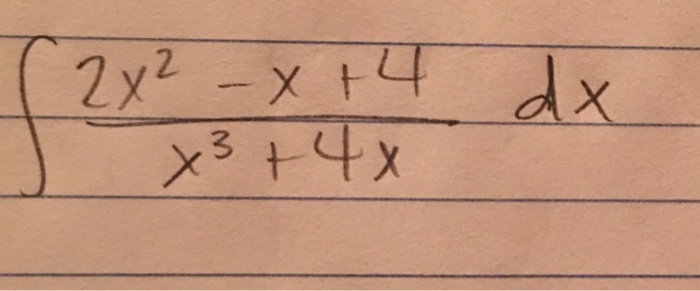 ∫ (2x² - x + 4)/(x³ + 4x) dx